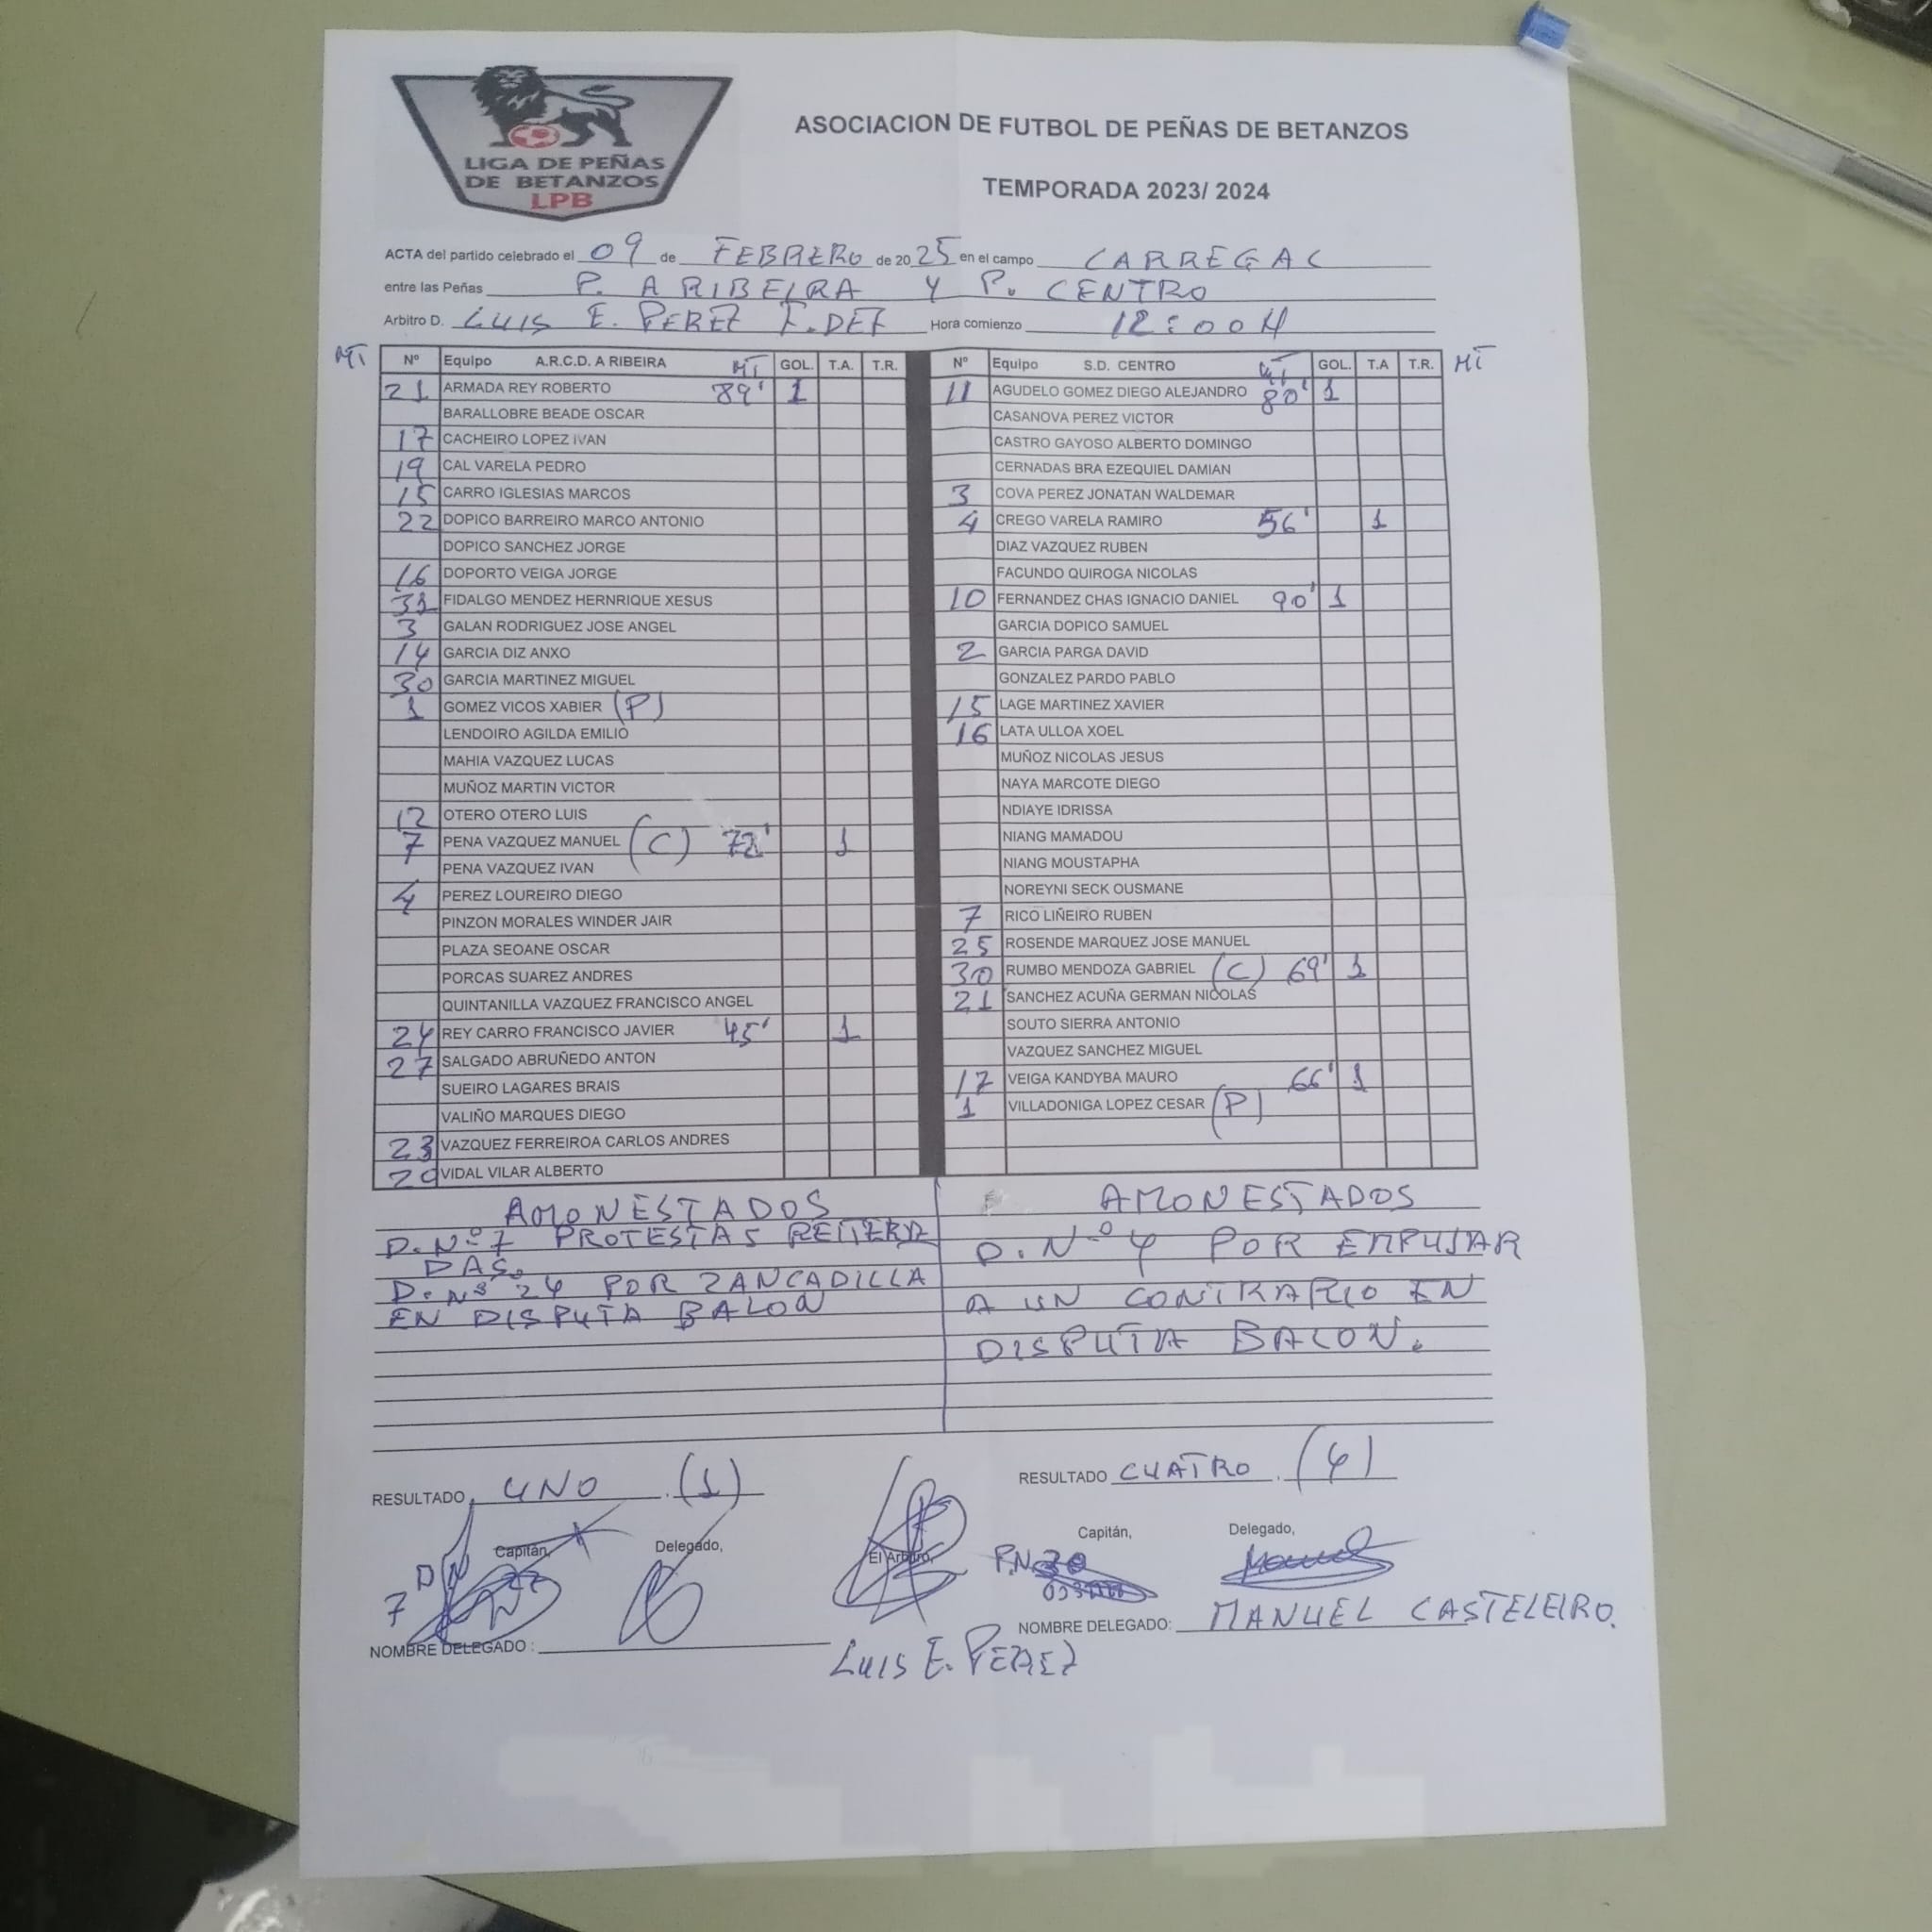 LIGA DE PEÑAS
DE BETANZOS
LPB
ASOCIACION DE FUTBOL DE PEÑAS DE BETANZOS
TEMPORADA 2023/ 2024
ACTA del partido celebrado el 09 de FEBRERO de 2025 en el campo CARREGAL
entre las Peñas P. A RIBEIRA Y P. CENTRO
Arbitro D. LUIS E. PEREZ F. DEZ Hora comienzo 12:00 H
MT Nº Equipo A.R.C.D. A RIBEIRA MT GOL. T.A. T.R.
21 ARMADA REY ROBERTO 89' 1
BARALLOBRE BEADE OSCAR
17 CACHEIRO LOPEZ IVAN
19 CAL VARELA PEDRO
15 CARRO IGLESIAS MARCOS
22 DOPICO BARREIRO MARCO ANTONIO
DOPICO SANCHEZ JORGE
16 DOPORTO VEIGA JORGE
FIDALGO MENDEZ HERNRIQUE XESUS
3 GALAN RODRIGUEZ JOSE ANGEL
14 GARCIA DIZ ANXO
30 GARCIA MARTINEZ MIGUEL
1 GOMEZ VICOS XABIER (P)
LENDOIRO AGILDA EMILIO
MAHIA VAZQUEZ LUCAS
MUÑOZ MARTIN VICTOR
12 OTERO OTERO LUIS
7 PENA VAZQUEZ MANUEL (C) 72' 1
PENA VAZQUEZ IVAN
4 PEREZ LOUREIRO DIEGO
PINZON MORALES WINDER JAIR
PLAZA SEOANE OSCAR
PORCAS SUAREZ ANDRES
QUINTANILLA VAZQUEZ FRANCISCO ANGEL
24 REY CARRO FRANCISCO JAVIER 45' 1
27 SALGADO ABRUÑEDO ANTON
SUEIRO LAGARES BRAIS
VALIÑO MARQUES DIEGO
23 VAZQUEZ FERREIROA CARLOS ANDRES
20 VIDAL VILAR ALBERTO
Nº Equipo S.D. CENTRO MT GOL. T.A T.R. MT
11 AGUDELO GOMEZ DIEGO ALEJANDRO 80' 1
CASANOVA PEREZ VICTOR
CASTRO GAYOSO ALBERTO DOMINGO
CERNADAS BRA EZEQUIEL DAMIAN
3 COVA PEREZ JONATAN WALDEMAR
4 CREGO VARELA RAMIRO 56' 1
DIAZ VAZQUEZ RUBEN
FACUNDO QUIROGA NICOLAS
10 FERNANDEZ CHAS IGNACIO DANIEL 90' 1
GARCIA DOPICO SAMUEL
2 GARCIA PARGA DAVID
GONZALEZ PARDO PABLO
15 LAGE MARTINEZ XAVIER
16 LATA ULLOA XOEL
MUÑOZ NICOLAS JESUS
NAYA MARCOTE DIEGO
NDIAYE IDRISSA
NIANG MAMADOU
NIANG MOUSTAPHA
NOREYNI SECK OUSMANE
7 RICO LIÑEIRO RUBEN
25 ROSENDE MARQUEZ JOSE MANUEL
30 RUMBO MENDOZA GABRIEL (C) 69' 1
21 SANCHEZ ACUÑA GERMAN NICOLAS
SOUTO SIERRA ANTONIO
VAZQUEZ SANCHEZ MIGUEL
17 VEIGA KANDYBA MAURO 66' 1
1 VILLADONIGA LOPEZ CESAR (P)
AMONESTADOS
D. Nº 7 PROTESTAS REITERA
DAS.
D. Nº 24 POR ZANCADILLA
EN DISPUTA BALON
AMONESTADOS
D. Nº 4 POR EMPUJAR
A UN CONTRARIO EN
DISPUTA BALON.
RESULTADO UNO (1)
RESULTADO CUATRO (4)
Capitán, Delegado, El Arbitro, Capitán, Delegado,
7 DN
NOMBRE DELEGADO :
LUIS E. PEREZ
NOMBRE DELEGADO: MANUEL CASTELEIRO.